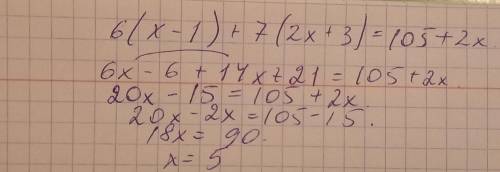 6(x-1)+7(2x+3)=105+2x
6x-6+14x+21=105+2x.
20x-15=105+2x.
20x-2x=105-15.
18x=90.
x=5